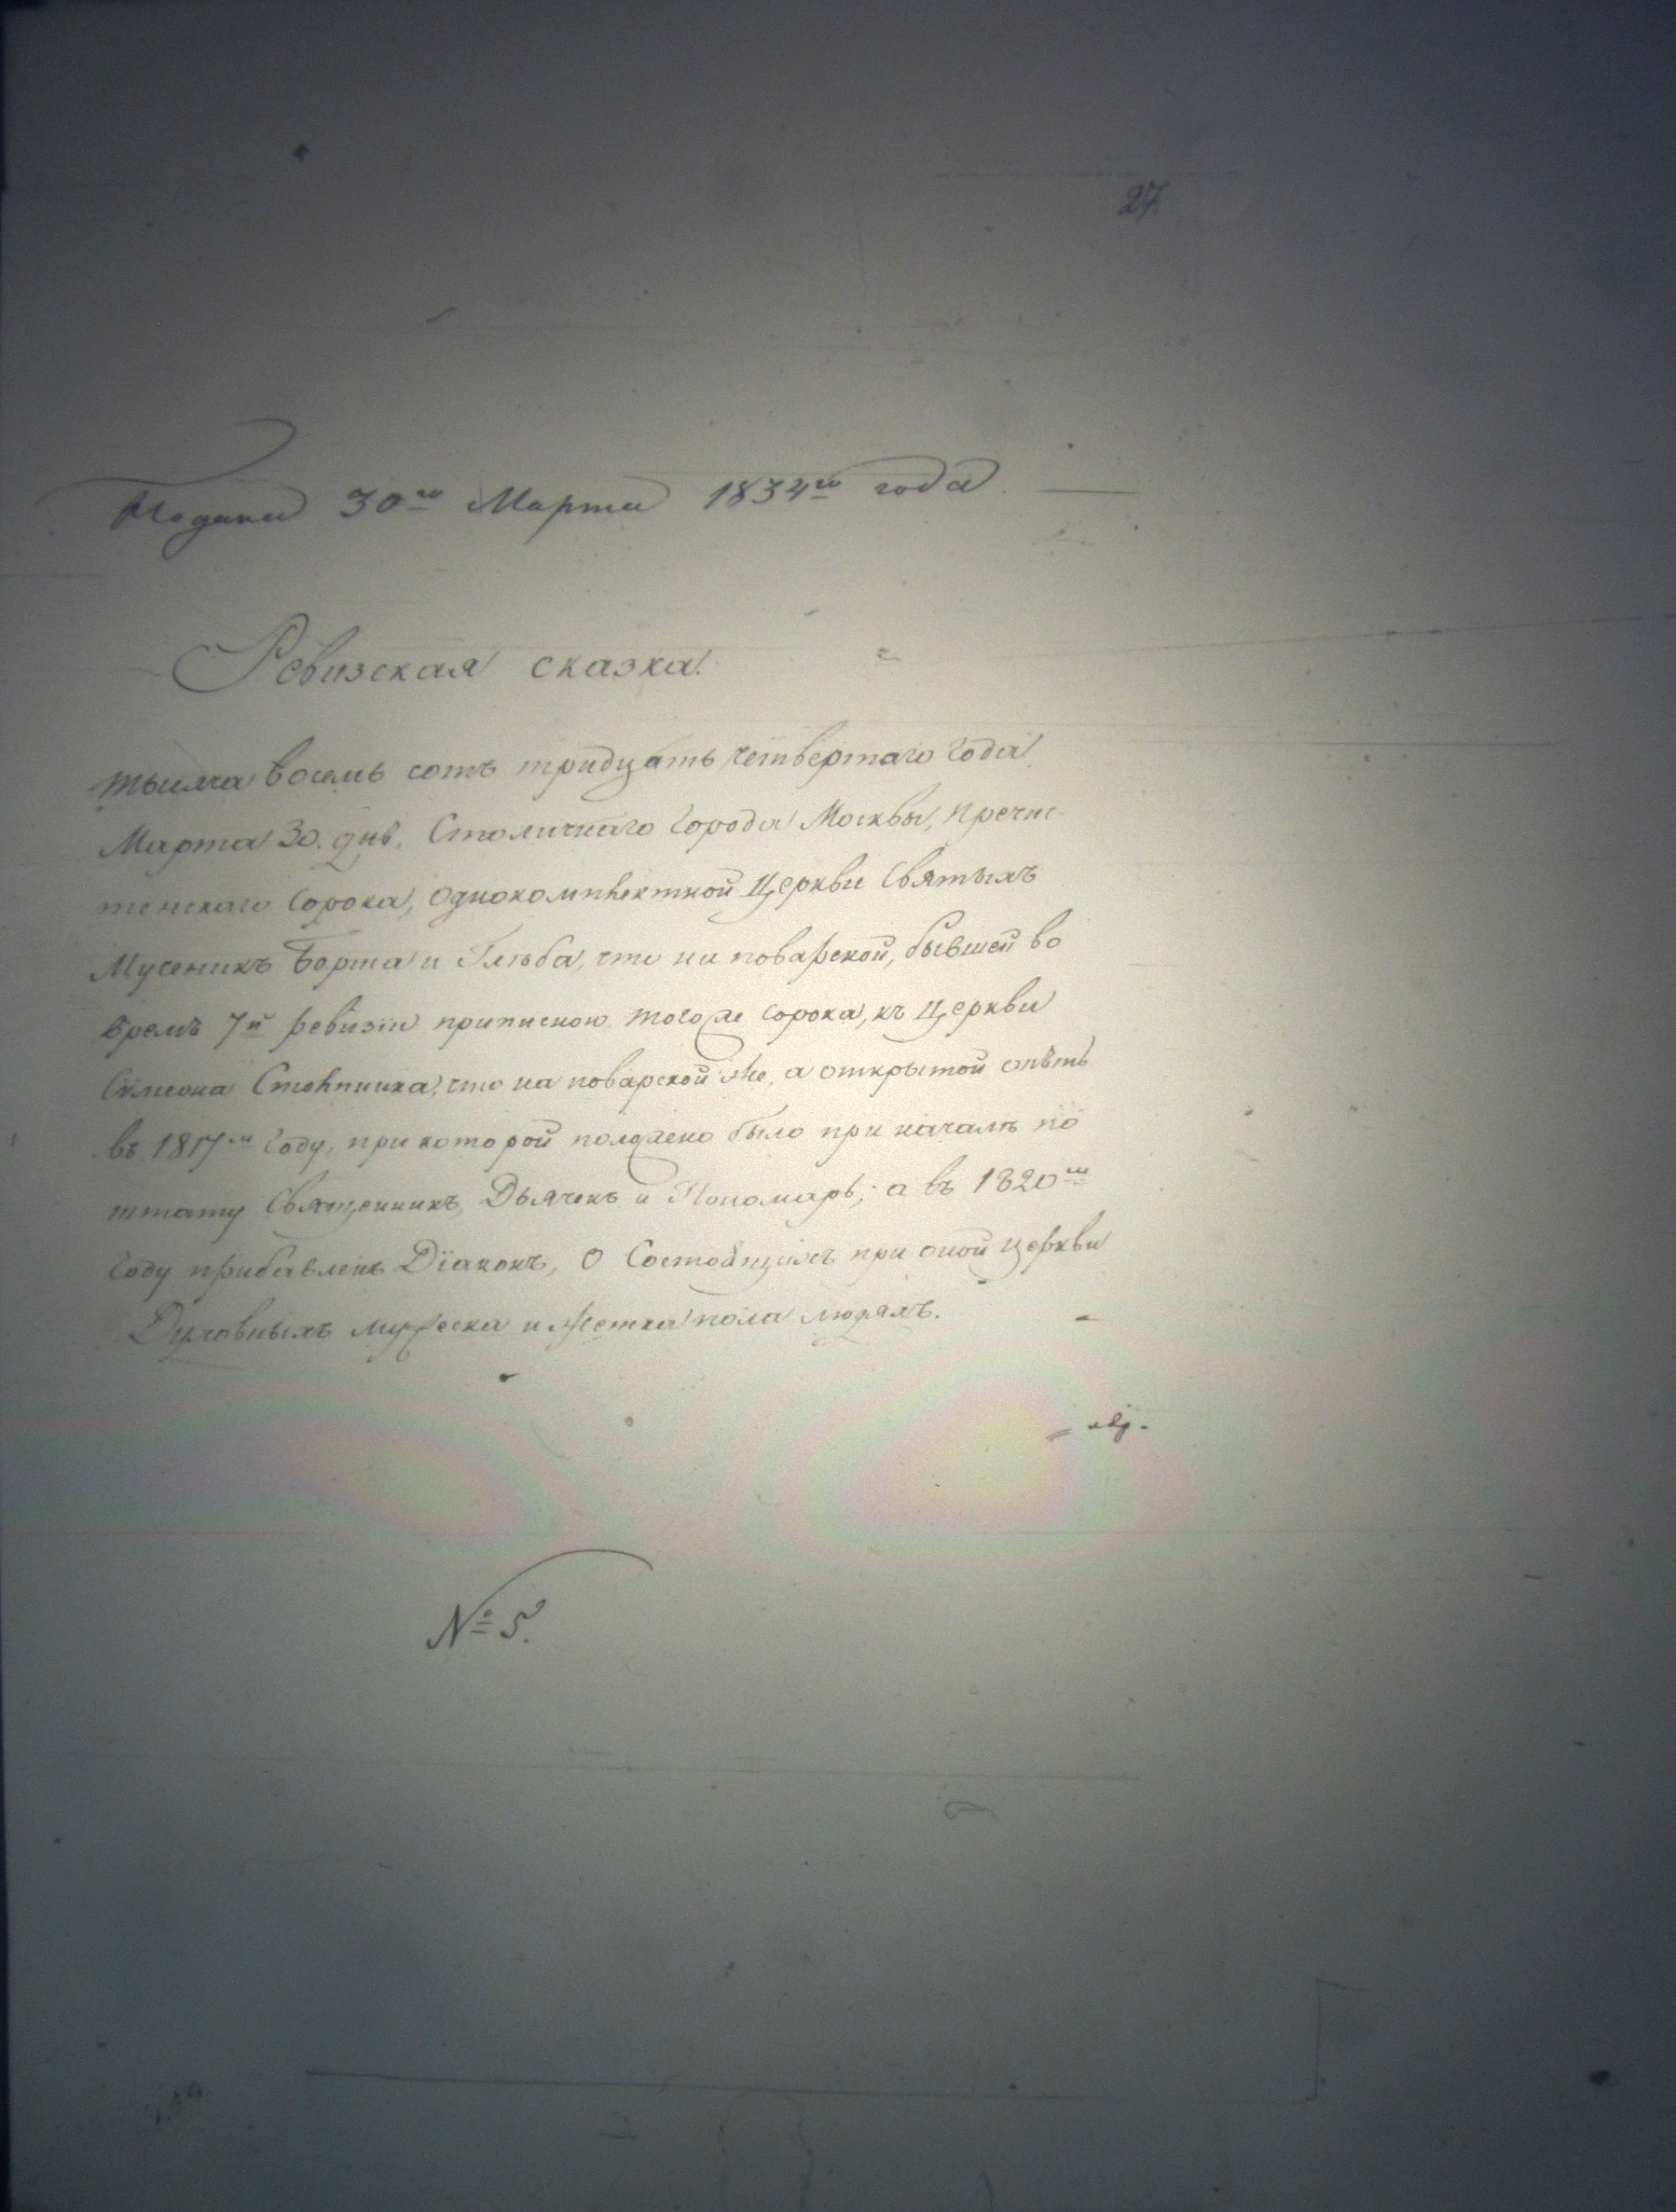 27
Подана 30го Марта 1834го года.
Ревизская сказка.
тысяча восемь сотъ тридцать четвертаго года
Марта 30. дня. Столичнаго города Москвы, Пречис
тенскаго сорока, однокомплектной Церкви Святыхъ
Мученикъ Бориса и Глѣба, что на поварской, бывшей во
время 7й ревизіи приписною тогоже сорока, къ Церкви
Симеона Столпника, что на поварской же, а открытой опять
въ 1817м году, при которой положено было при началѣ по
штату Священникъ, Дьячекъ и Пономарь; а въ 1820м
году прибавленъ Діаконъ, О Состоящихъ при оной церкви
Духовныхъ мужеска и женска пола людяхъ.
№ 5.